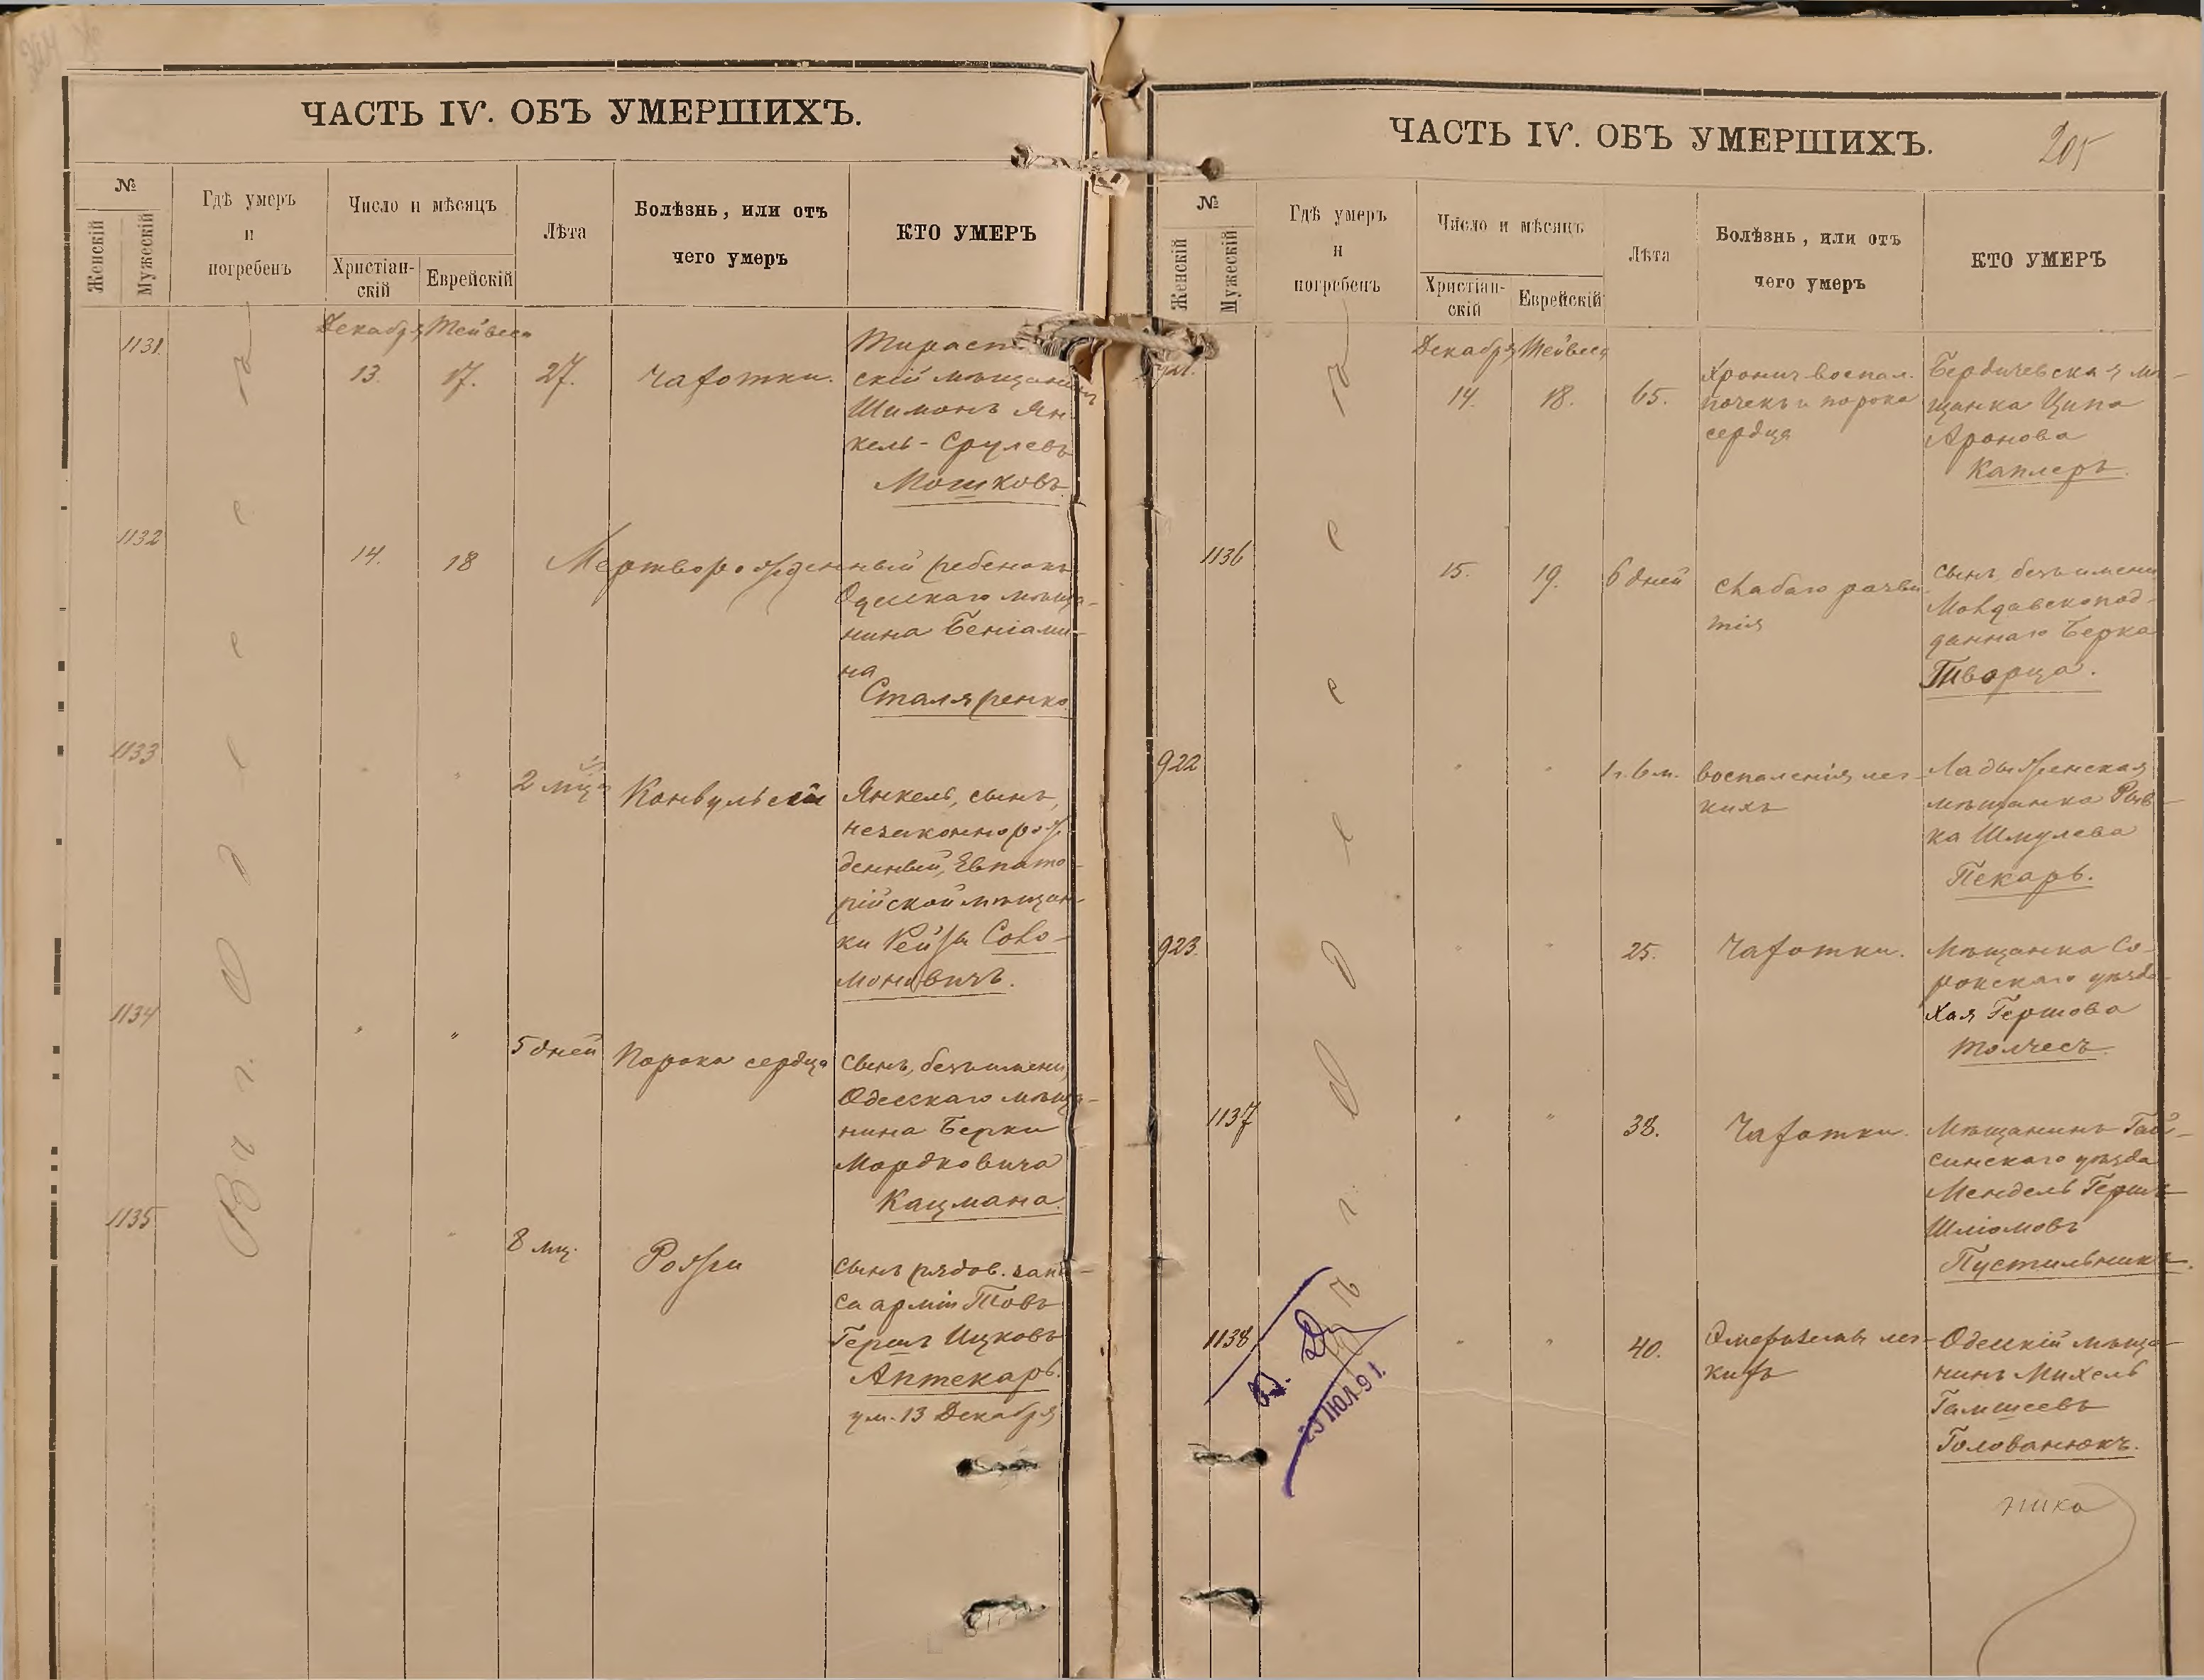 ЧАСТЬ IV. ОБЪ УМЕРШИХЪ.
№
Женскій
Мужескій
Гдѣ умеръ
и
погребенъ
Число и мѣсяцъ
Христіан-
скій
Еврейскій
Лѣта
Болѣзнь, или отъ
чего умеръ
КТО УМЕРЪ
Декабря Тейвеса
1131
13. 17. 27. Чахотки.
скій мѣщанинъ
Шимонъ Ян-
кель-Срулевъ
Мошковъ
1132
14. 18 Мертворожденный ребенокъ
Одесскаго мѣща-
нина Беніами-
на
Сталяренко
1133
" " 2 мца Конвульсіи Янкель, сынъ,
незаконнорож
денный, Евпато-
рійской мѣщан-
ки Рейзы Соло-
моновичъ.
1134
" " 5 дней Порока сердца Сынъ, безъ имени,
Одесскаго мѣща-
нина Берки
Мордковича
Кацмана.
1135
" 8 мц. Рожи
сынъ рядов. запа-
са арміи Товъ
Гершъ Ицковъ
Аптекарь.
ум. 13 Декабря
Въ г. Одессѣ
ЧАСТЬ IV. ОБЪ УМЕРШИХЪ.
205
№
Женскій
Мужескій
Гдѣ умеръ
и
погребенъ
Число и мѣсяцъ
Христіан-
скій
Еврейскій
Лѣта
Болѣзнь, или отъ
чего умеръ
КТО УМЕРЪ
Декабря Тейвеса
921.
14. 18. 65. Хронич. воспал. Бердичевская мѣ-
почекъ и порока щанка Ципа
сердца Аронова
Каплеръ.
1136
15. 19. 6 дней Слабаго разви- Сынъ, безъ имени
тія Молдавскопод-
даннаго Берка
Творца.
922
" " 1 г. 6 м. Воспаленія лег- Ладыженская
кихъ мѣщанка Рив-
ка Шмулева
Пекарь.
923.
" " 25. Чахотки. Мѣщанка Со-
рокскаго уѣзда
Хая Гершова
Толчесъ.
1137
" " 38. Чахотки. Мѣщанинъ Гай-
синскаго уѣзда
Мендель Гершъ
Шліомовъ
Пустильникъ.
1138
" " 40. Омертвѣнія лег- Одесскій мѣща-
кихъ нинъ Михель
Голованюкъ.
Въ г. Одессѣ
ІЮЛ 91.
ника